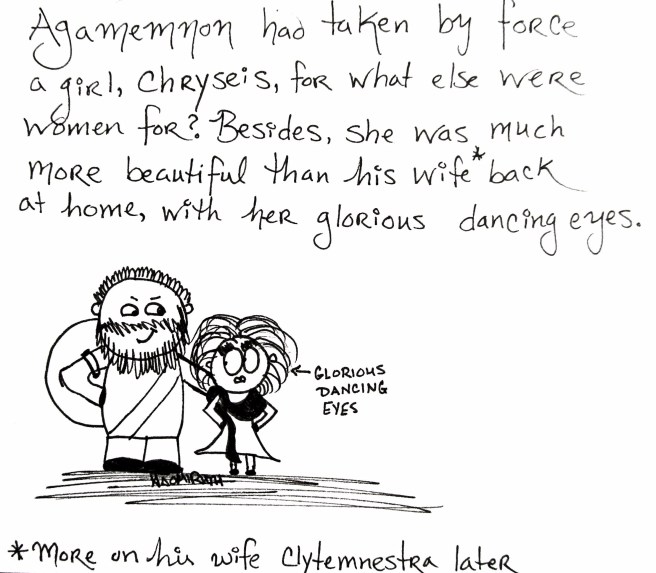 Agamemnon had taken by force
a girl, Chryseis, for what else were
women for? Besides, she was much
more beautiful than his wife* back
at home, with her glorious dancing eyes.
← GLORIOUS
DANCING
EYES
NAOMIRUTH
*More on his wife Clytemnestra later